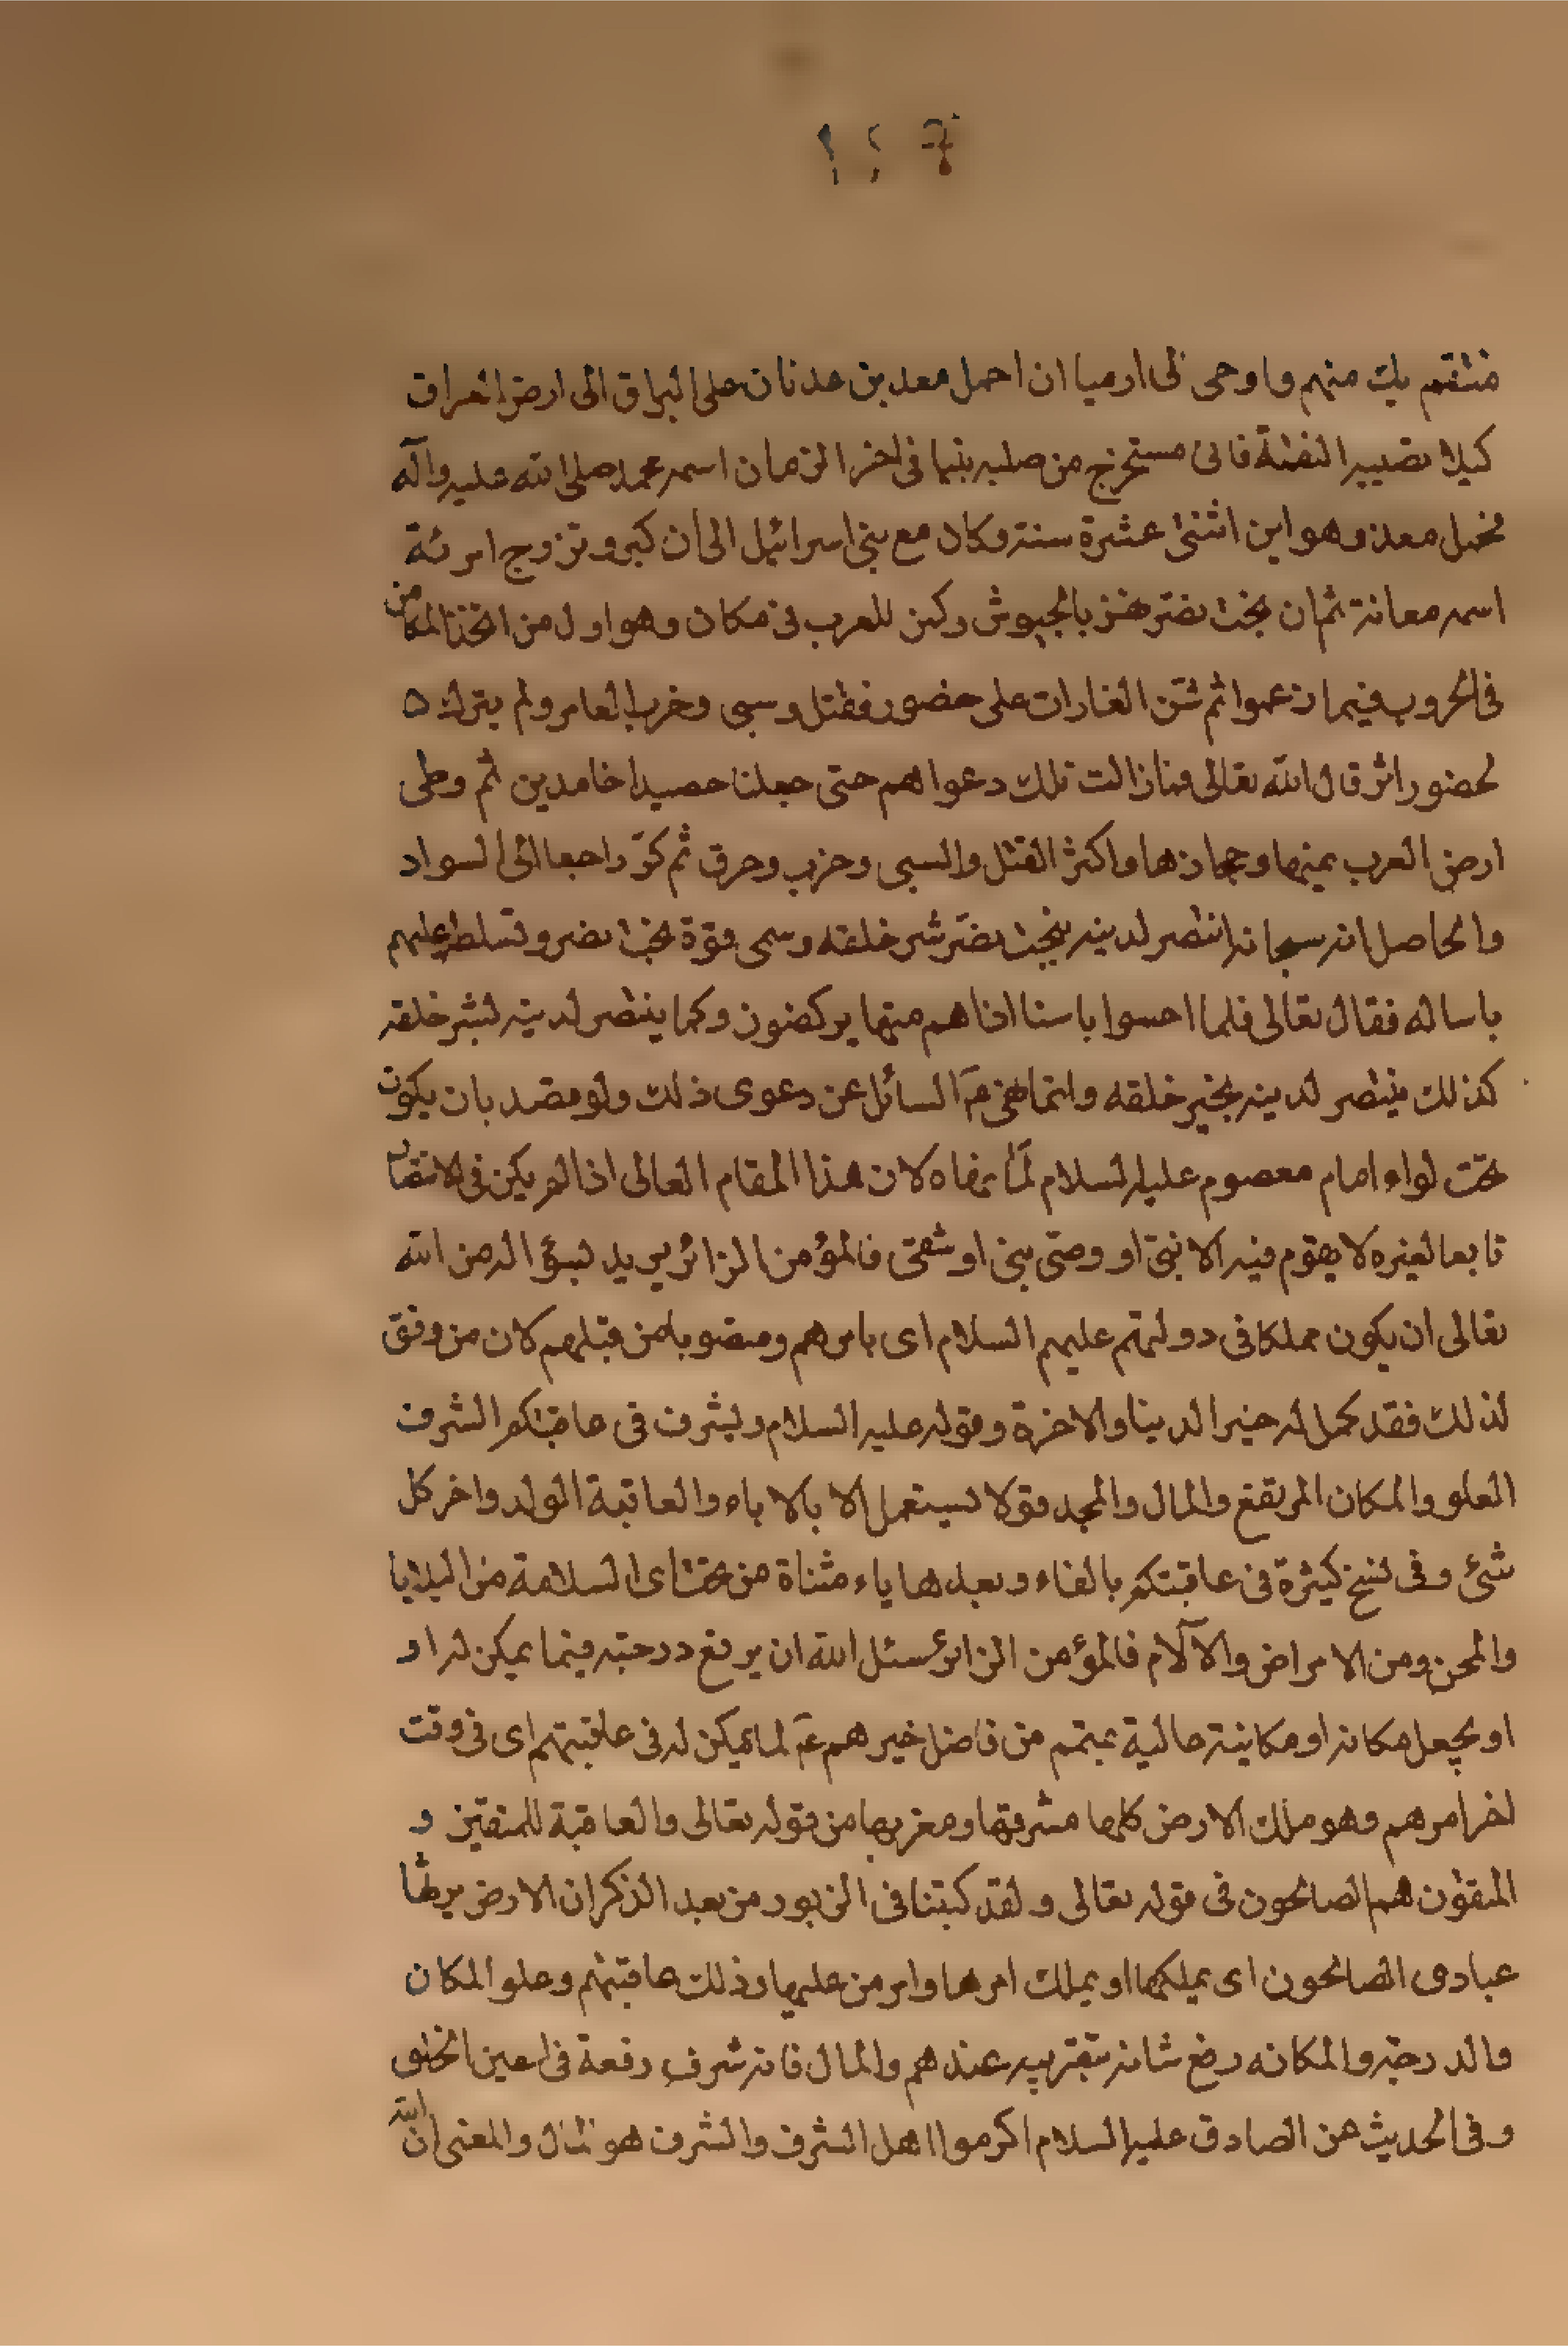 منتقم بك منهم واوحى الى ارميا ان احمل معد بن عدنان على البراق الى ارض العراق
كيلا تصيبه النقمة فانى مستخرج من صلبه نبيا فى اخر الزمان اسمه محمد صلى الله عليه وآله
فحمل معد وهو ابن اثنتى عشرة سنة وكان مع بنى اسرائيل الى ان كبر وتزوج امرئة
اسمه معانة ثم ان بخت نصر بالجيوش وكمن للعرب فى مكان وهو اول من اتخذ المكامن
فى الحروب فيما زعموا ثم شن الغارات على حضور فقتل وسبى وخرب العامر ولم يترك
لحضور اثر قال الله تعالى فما زالت تلك دعواهم حتى جعلنا حصيدا خامدين ثم وطى
ارض العرب يمنها وحجازها واكثر القتل والسبى وخرب وحرق ثم كرّ راجعا الى السواد
والحاصل انه سبحانه انتصر لدينه ببخت نصّر شر خلقه وسمى قوة بخت نصر وتسلطه عليهم
باسا له فقال تعالى فلما احسوا باسنا اذا هم منها يركضون وكما ينتصر لدينه بشر خلقه
كذلك ينتصر لدينه بخير خلقه وانما السائل عن دعوى ذلك ولو مقيد بان يكون
تحت لواء امام معصوم عليه السلام لان هذا المقام العالى اذا لم يكن فى الانتقام
تابعا لغيره لا يقوم فيه الا نبىّ او وصىّ نبى او شقى فالمؤمن الزائر يريد من الله
تعالى ان يكون مملكا فى دولتهم عليهم السلام اى بامرهم ومنصوبا من قبلهم كان من وفق
لذلك فقد كمل له خير الدنيا والاخرة وقوله عليه السلام ويشرف فى عاقبتكم الشرف
العلو والمكان المرتفع والمال والمجد وقولا يستعمل الا بالاباء والعاقبة الولد واخر كل
شئ وفى نسخ كثيرة فى عافيتكم بالفاء وبعدها ياء مثناة من تحت اى السلامة من البلايا
والمحن ومن الامراض والآلام فالمؤمن الزائر يسئل الله ان يرفع درجته فيما يمكن له او
او يجعل مكانه او مكانيته عالية من فاضل خيرهم لما يمكن له فى عاقبتهم اى فى وقت
اخر امرهم وهو ملك الارض كلها مشرقها ومغربها من قوله تعالى والعاقبة للمتقين و
المتقون هم الصالحون فى قوله تعالى ولقد كتبنا فى الزبور من بعد الذكر ان الارض يرثها
عبادى الصالحون اى يملكها او يملك امرها وامر من عليها وذلك عاقبتهم وعلو المكان
والدرجة والمكانه رفع شانه بتقريبه عندهم والمال فانه شرف ورفعة فى اعين الخلق
وفى الحديث عن الصادق عليه السلام اكرموا اهل الشرف والشرف هو المال والمعنى ان الله